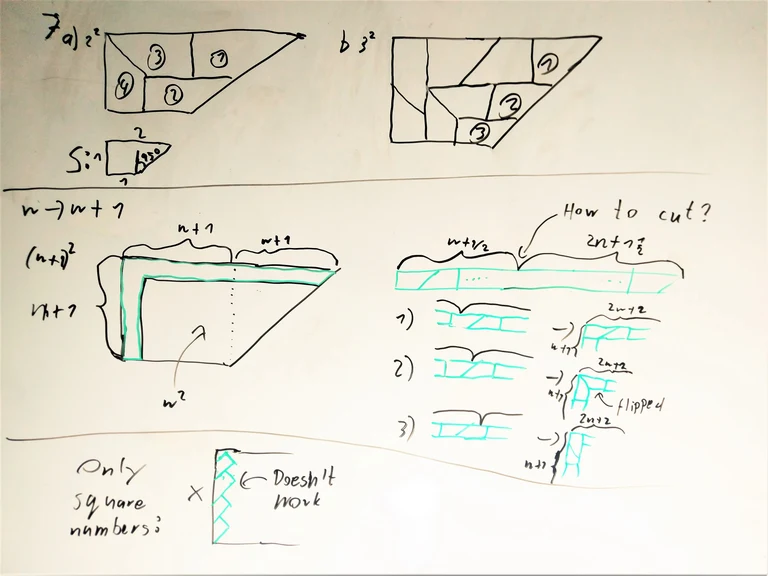 7 a) 2²
③ ① ④ ②
b 3²
① ② ③
S: 1 2 1 45°
n → n + 1
(n+1)²
n+1 n+1
n+1
n²
How to cut?
n+1/2 2n+1 1/2
.... ....
1) → 2n+2 n+1
2) → 2n+2 n+1
flipped
3) → 2n+2 n+1
Only
square
numbers:
x
Doesn't
work